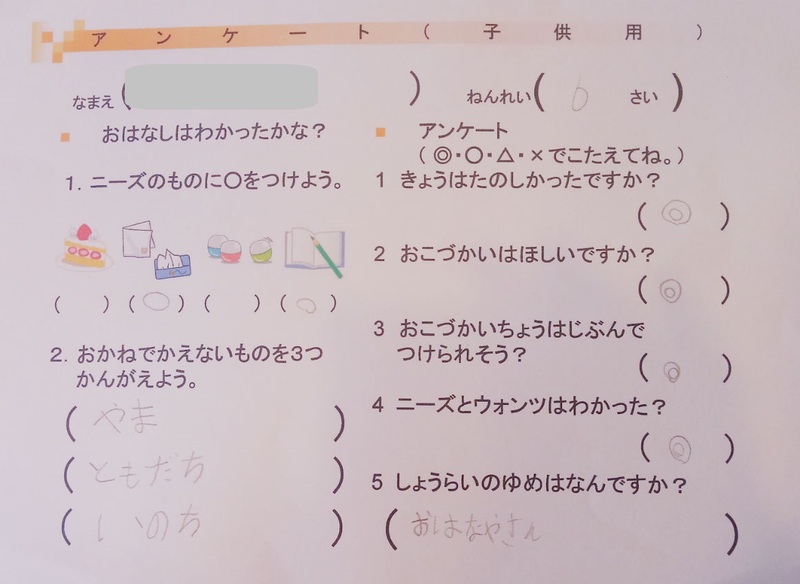 アンケート（子供用）
なまえ（　）　ねんれい（6さい）
■ おはなしはわかったかな？
1. ニーズのものに〇をつけよう。
（　）（〇）（　）（〇）
2. おかねでかえないものを3つ
かんがえよう。
（やま）
（ともだち）
（いのち）
■ アンケート
（◎・〇・△・×でこたえてね。）
1 きょうはたのしかったですか？
（◎）
2 おこづかいはほしいですか？
（◎）
3 おこづかいちょうはじぶんで
つけられそう？
（◎）
4 ニーズとウォンツはわかった？
（◎）
5 しょうらいのゆめはなんですか？
（おはなやさん）